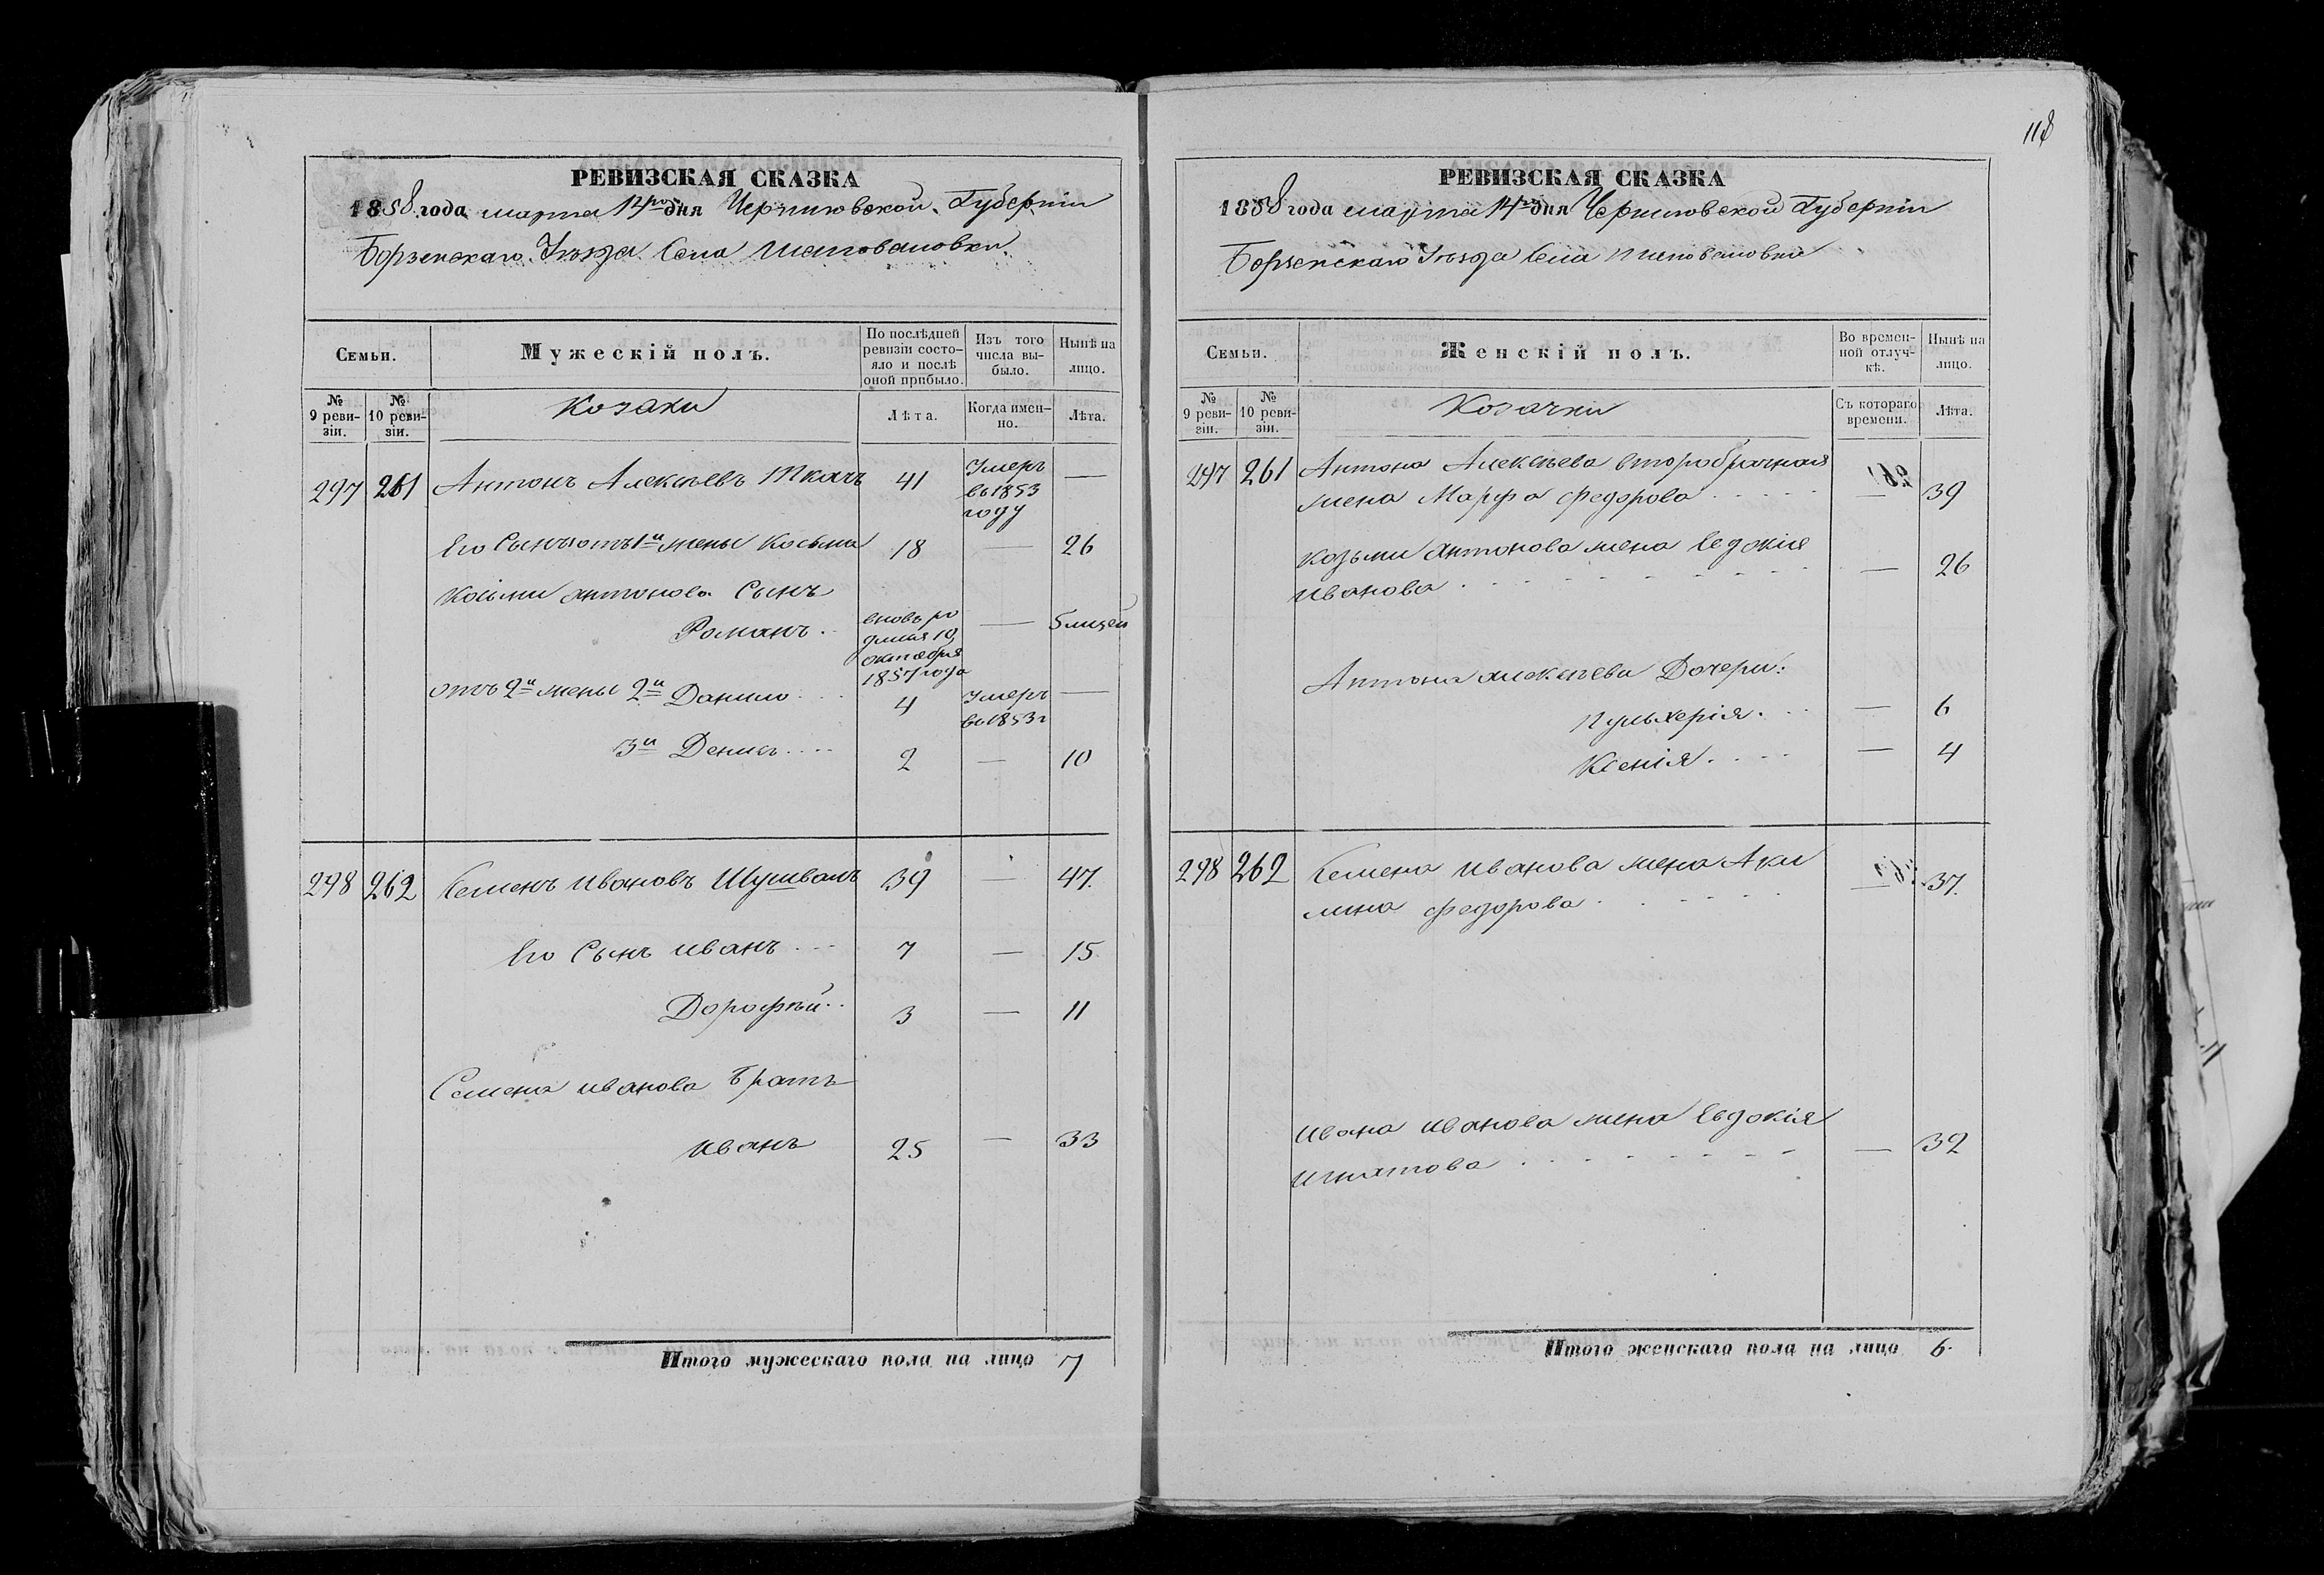 118
РЕВИЗСКАЯ СКАЗКА
1858 года марта 14го дня Черниговской Губерніи
Борзенскаго Уѣзда Села Шаповаловки
Семьи.
Мужескій полъ.
По послѣдней ревизіи состояло и послѣ оной прибыло.
Изъ того числа выбыло.
Нынѣ на лицо.
№ 9 ревизіи.
№ 10 ревизіи.
Козаки
Лѣта.
Когда именно.
Лѣта.
297 261 Антонъ Алексѣевъ Ткачъ 41 Умеръ въ 1853 году —
Его Сынъ отъ 1й жены Косьма 18 — 26
Косьмы Антонова Сынъ
Романъ вновь родился 10 октября 1857 года — 5 мѣсей
отъ 2й жены 2й Данило 4 Умеръ въ 1853 г —
3й Денисъ 2 — 10
298 262 Семенъ Ивановъ 39 — 47.
Его Сынъ Иванъ 7 — 15
Дорофѣй 3 — 11
Семена Иванова Братъ
Иванъ 25 — 33
Итого мужескаго пола на лицо 7
РЕВИЗСКАЯ СКАЗКА
1858 года марта 14го дня Черниговской Губерніи
Борзенскаго Уѣзда Села Шаповаловки
Семьи.
Женскій полъ.
Во временной отлучкѣ.
Нынѣ на лицо.
№ 9 ревизіи.
№ 10 ревизіи.
Козачки
Съ котораго времени.
Лѣта.
297 261 Антона Алексѣева второбрачная
жена Марфа Федорова — 39
Козьмы Антонова жена Евдокія
Иванова — 26
Антона Алексѣева Дочери:
Пульхерія — 6
Ксенія — 4
298 262 Семена Иванова жена Аки
лина Федорова — 37.
Ивана Иванова жена Евдокія
Игнатова — 32
Итого женскаго пола на лицо 6.